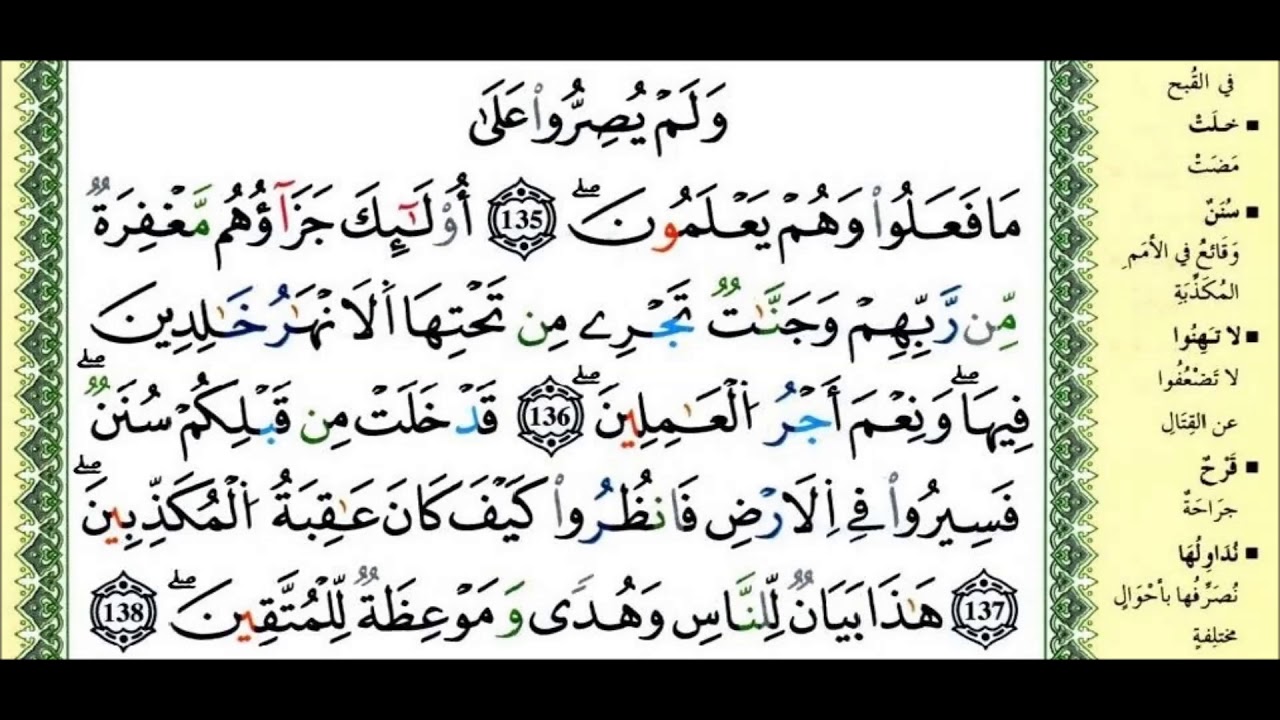 وَلَمْ يُصِرُّواْ عَلَىٰ
مَا فَعَلُواْ وَهُمْ يَعْلَمُونَ ۖ 135 أُوْلَٰٓئِكَ جَزَآؤُهُم مَّغْفِرَةٌ
مِّن رَّبِّهِمْ وَجَنَّٰتٌ تَجْرِے مِن تَحْتِهَا اَ۬لَانْهَٰرُ خَٰلِدِينَ
فِيهَا ۖ وَنِعْمَ أَجْرُ اُ۬لْعَٰمِلِينَ ۖ 136 قَدْ خَلَتْ مِن قَبْلِكُمْ سُنَنٌ ۖ
فَسِيرُواْ فِے اِ۬لَارْضِ فَانظُرُواْ كَيْفَ كَانَ عَٰقِبَةُ اُ۬لْمُكَذِّبِينَ ۖ
137 هَٰذَا بَيَانٌ لِّلنَّاسِ وَهُدًى وَمَوْعِظَةٌ لِّلْمُتَّقِينَ ۖ 138
في القُبح
■ خلَتْ
مَضَتْ
■ سُنَنٌ
وَقَائعُ في الأمَمِ
المُكَذِّبَةِ
■ لا تَهِنُوا
لا تَضْعُفُوا
عن القِتَالِ
■ قَرْحٌ
جرَاحَةٌ
■ نُدَاوِلُهَا
نُصَرِّفُها بأحْوَالٍ
مختلِفةٍ